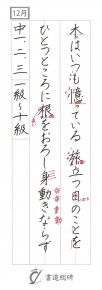 12月
木はいつも憶っている 旅立つ日のことを
ひとつところに根をおろし身動きならず
中一、二、三 一級〜十級
書道総研